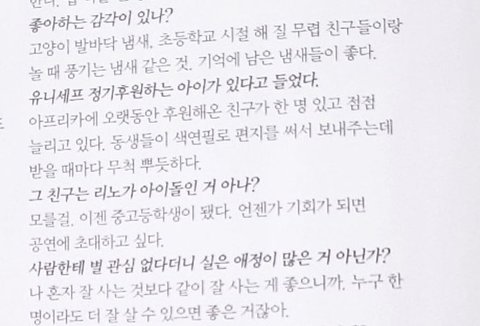 좋아하는 감각이 있나?
고양이 발바닥 냄새, 초등학교 시절 해 질 무렵 친구들이랑
놀 때 풍기는 냄새 같은 것. 기억에 남은 냄새들이 좋다.
유니세프 정기후원하는 아이가 있다고 들었다.
아프리카에 오랫동안 후원해온 친구가 한 명 있고 점점
늘리고 있다. 동생들이 색연필로 편지를 써서 보내주는데
받을 때마다 무척 뿌듯하다.
그 친구는 리노가 아이돌인 거 아나?
모를걸. 이젠 중고등학생이 됐다. 언젠가 기회가 되면
공연에 초대하고 싶다.
사람한테 별 관심 없다더니 실은 애정이 많은 거 아닌가?
나 혼자 잘 사는 것보다 같이 잘 사는 게 좋으니까. 누구 한
명이라도 더 잘 살 수 있으면 좋은 거잖아.